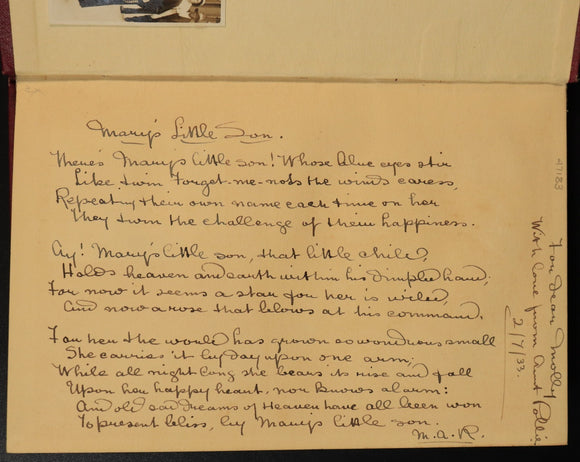 Mary's Little Son.
There's Mary's little son! Whose blue eyes stir
Like twin Forget-me-nots the winds caress,
Repeating their own name each time on her
They turn the challenge of their happiness.
Ay! Mary's little son, that little child,
Holds heaven and earth within his dimpled hand;
For now it seems a star for her is wiled,
And now a rose that blows at his command.
For her the world has grown so wondrous small
She carries it by day upon one arm;
While all night long she bears its rise and fall
Upon her happy heart, nor knows alarm:
And old sad dreams of Heaven have all been won
To present bliss, by Mary's little son.
M.A.R.
47183
For dear Molly
With love from Aunt Pollie
2/7/33.